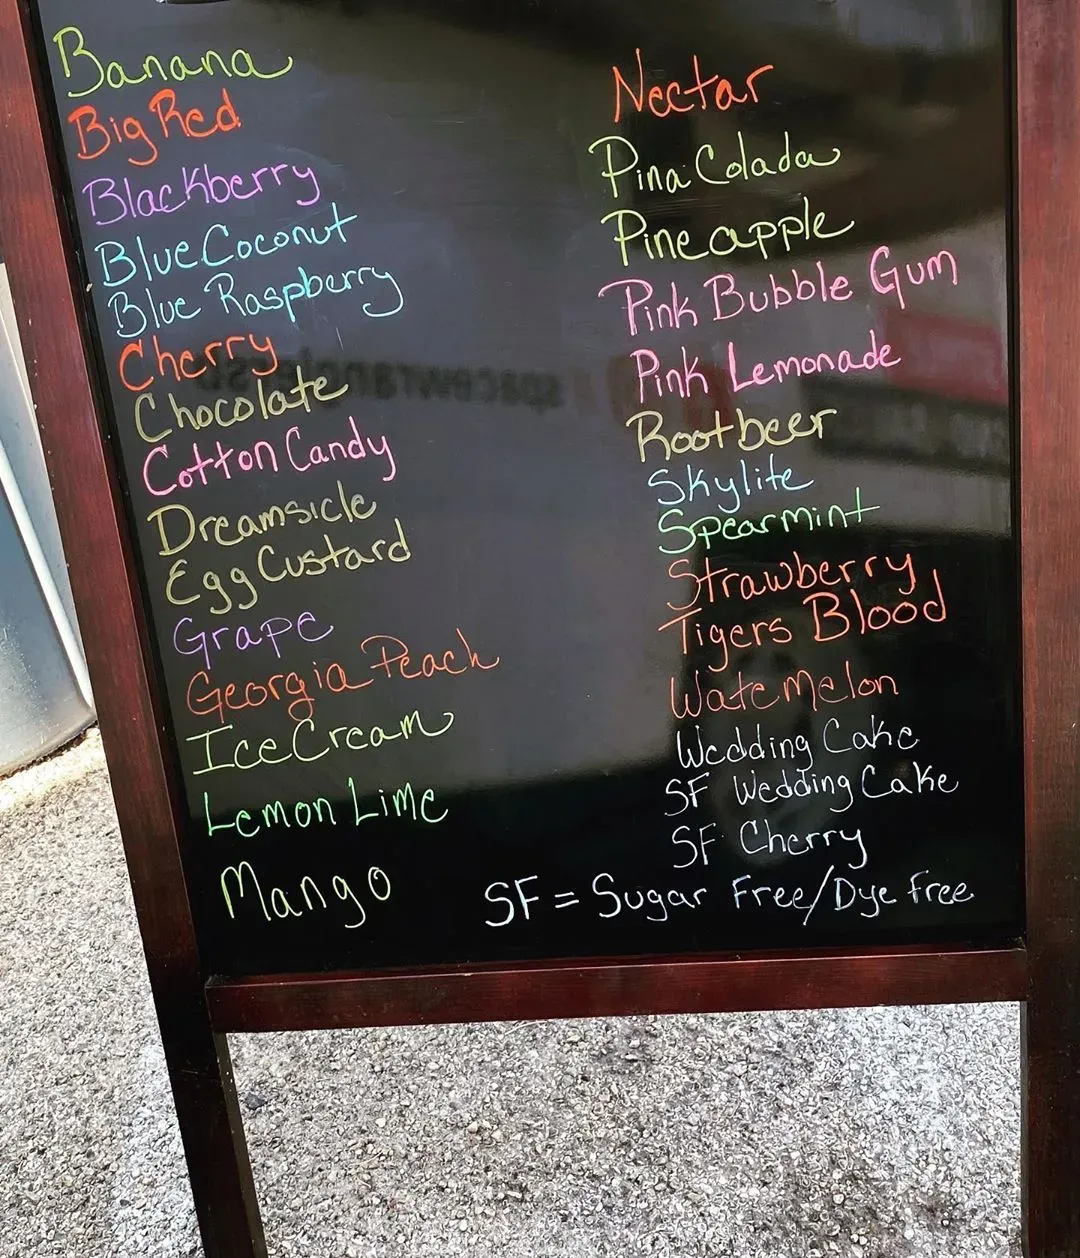 Banana
Big Red
Blackberry
Blue Coconut
Blue Raspberry
Cherry
Chocolate
Cotton Candy
Dreamsicle
Egg Custard
Grape
Georgia Peach
Ice Cream
Lemon Lime
Mango
Nectar
Pina Colada
Pineapple
Pink Bubble Gum
Pink Lemonade
Rootbeer
Skylite
Spearmint
Strawberry
Tigers Blood
Watemelon
Wedding Cake
SF Wedding Cake
SF Cherry
SF = Sugar Free/Dye free